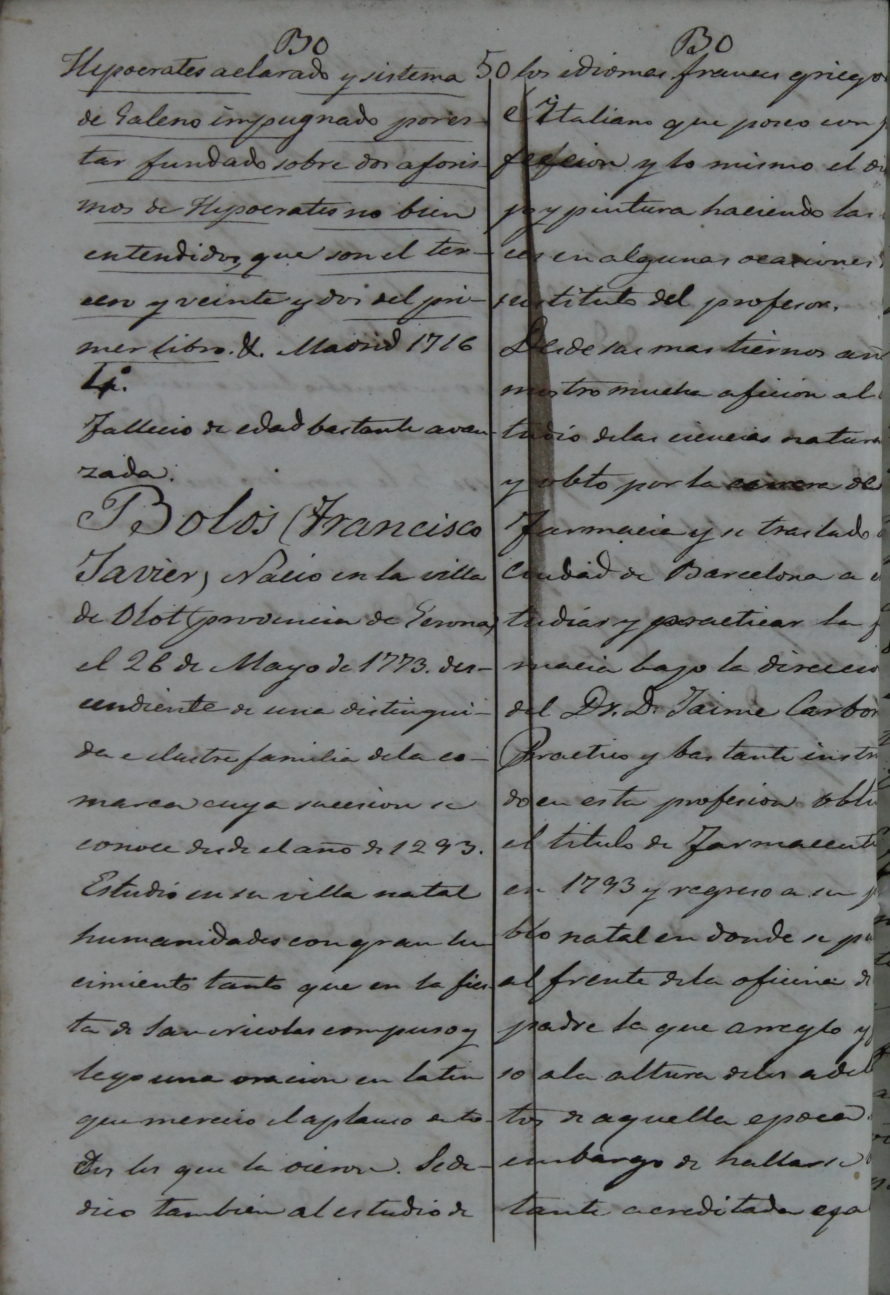 BO
Hypocrates aclarado y sistema
de Galeno impugnado por es-
tar fundado sobre dos aforis-
mos de Hypocrates no bien
entendidos, que son el ter-
cero y veinte y dos del pri-
mer libro. &. Madrid 1716
4º.
Fallecio de edad bastante avan-
zada.
Bolós (Francisco
Javier) Nacio en la villa
de Olot (provincia de Gerona)
el 26 de Mayo de 1773. des-
cendiente de una distingui-
da e ilustre familia de la co-
marca cuya sucesion se
conoce desde el año de 1293.
Estudio en su villa natal
humanidades con gran lu
cimiento tanto que en la fies
ta de San Nicolas compuso y
leyo una oracion en latin
que merecio el aplauso de to-
dos los que la oieron. Se de-
dico tambien al estudio de
BO
50 los idiomas frances griego
é Ytaliano que poseo con
feccion y lo mismo el di
jo y pintura haciendo las
ces en algunas ocasiones
sustituto del profesor.
Desde sus mas tiernos añ
mostro mucha aficion al
tudio de las ciencias natura
y obto por la carrera de
Farmacia y se traslado
Ciudad de Barcelona a
tudiar y practicar la f
macia bajo la direccio
del Dr. D. Jaime Carbo
Practico y bastante instr
do en esta profesion obtu
el titulo de Farmaceuti
en 1793 y regreso a su p
blo natal en donde se pu
al frente de la oficina de
padre la que arreglo y
so a la altura de los adel
tos de aquella epoca
embargo de hallarse
tante acreditada